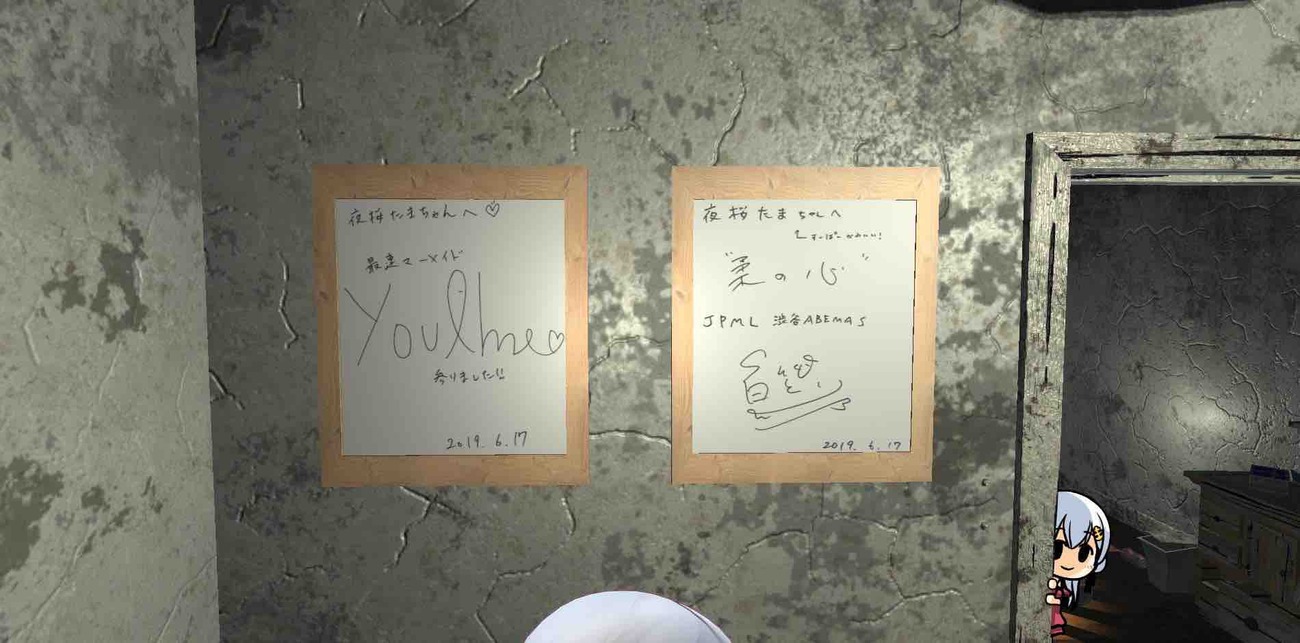 夜桜たまちゃんへ♡
最速マーメイド
Youlme♡
参りました!!
2019. 6. 17
夜桜たまちゃんへ
↑すーぱーかわいい!
"柔の心"
JPML 渋谷ABEMAS
2019. 6. 17